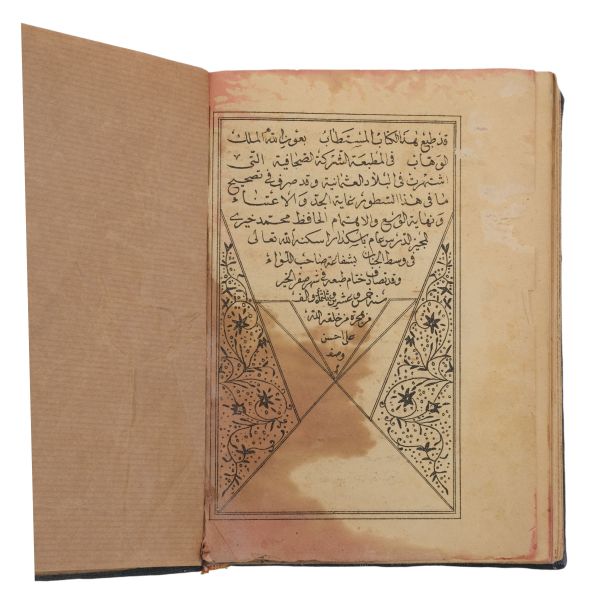 قد طبع هذا الكتاب المستطاب بعون الله الملك
الوهاب فى المطبعة الشركة الصحافية التى
اشتهرت فى البلاد العثمانية وقد صرف فى تصحيح
ما فى هذا السطور غاية الجد والاعتناء
ونهاية الوسع والاهتمام الحافظ محمد خيرى
المجيز المدرس عام باسكدار اسكنه الله تعالى
فى وسط الجنان بشفاعة صاحب اللواء
وقد تصادف ختام طبعه فى شهر صفر الخير
سنة خمس وعشرين وثلثمائة والف
من هجرة من خلقه الله
على احسن
وصف